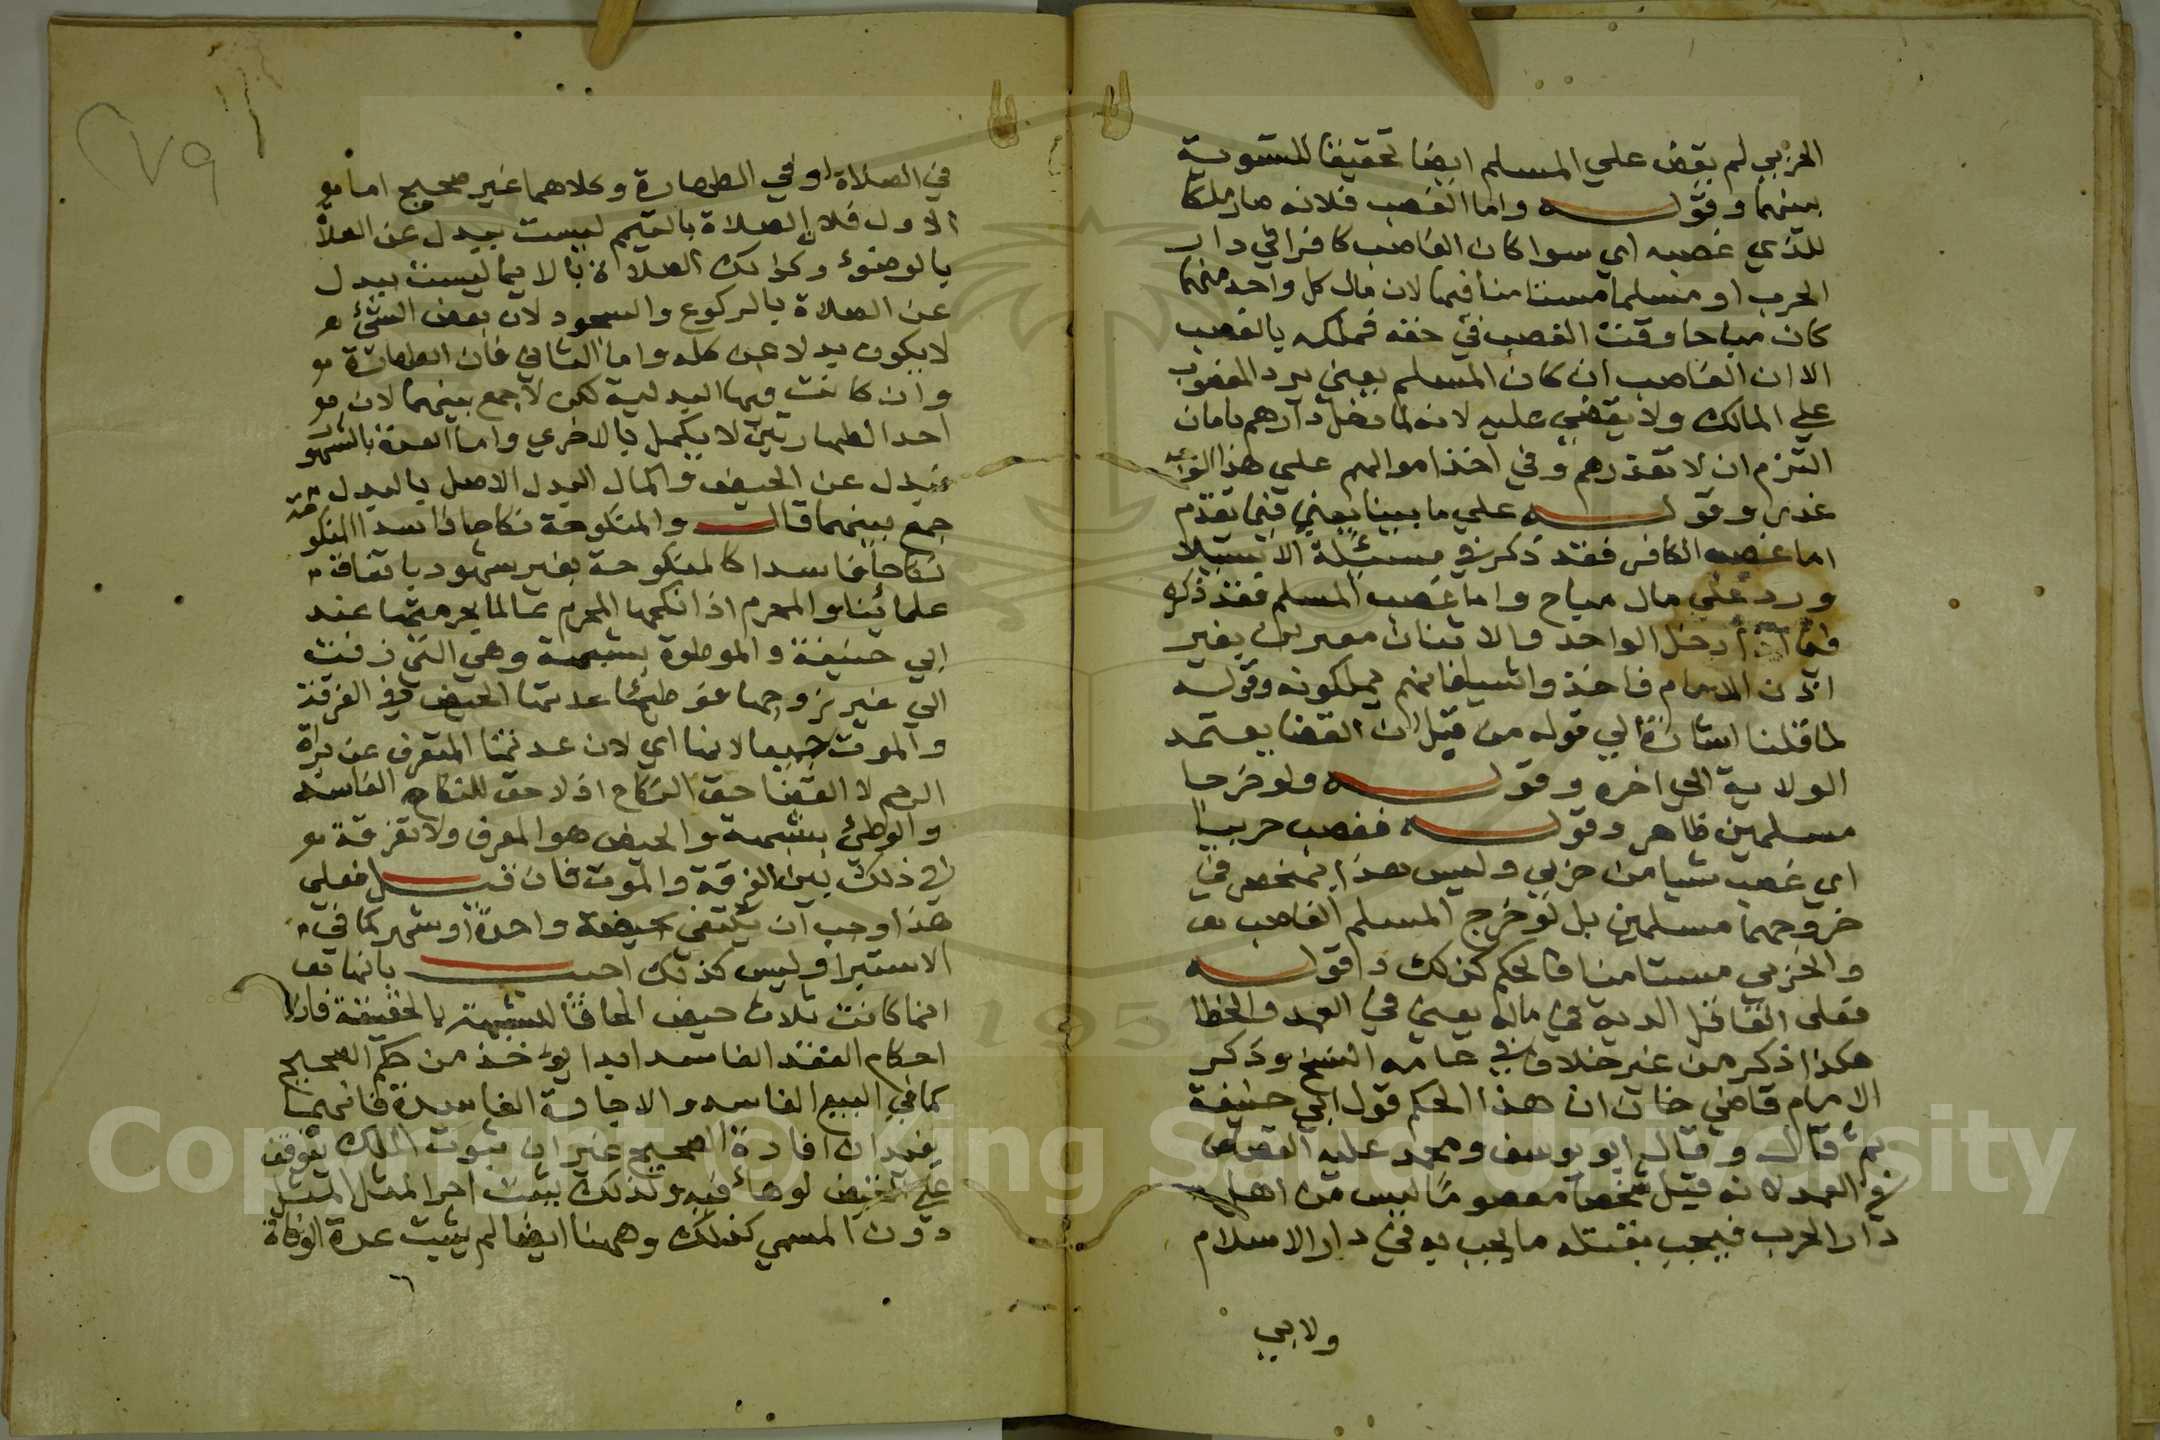 الحربي لم يقض علي المسلم ايضا تحقيقا للتسوية
بينهما وقوله واما الغصب فلانه صار ملكا
للذي غصبه اي سوا كان الغاصب كافرا في دار
الحرب او مسلما مستامنا فيها لان مال كل واحد منهما
كان مباحا وقت الغصب في حقه فملكه بالغصب
الا ان الغاصب ان كان المسلم يعني يرد المغصوب
علي المالك ولا يقضي عليه لانه لما دخل دارهم بامان
التزم ان لا يغدرهم وفي اخذ اموالهم علي هذا الوجه
غدر وقوله علي ما بينا يعني فيما تقدم
اما غصب الكافر فقد ذكر في مسئلة الاستيلا
ورد علي مال مباح واما غصب المسلم فقد ذكره
فيما اذا دخل الواحد والاثنان مغيرين بغير
اذن الامام فاخذوا شيا فانهم يملكونه وقوله
لما قلنا اشارة الي قوله من قبل ان القضا يعتمد
الولاية الي اخره وقوله ولو خرجا
مسلمين ظاهر وقوله فغصب حربيا
اي غصب شيا من حربي وليس هذا بمنحصر في
خروجهما مسلمين بل لو خرج المسلم الغاصب
والحربي مستامنا فالحكم كذلك وقوله
فعلى القاتل الدية في ماله يعني في العمد والخطا
هكذا ذكر من غير خلاف في عامه النسخ وذكر
الامام قاضي خان ان هذا الحكم قول ابي حنيفة
ثم قال وقال ابو يوسف ومحمد عليه القصاص
في العمد لانه قتل شخصا معصوما ليس من اهل
دار الحرب فيجب بقتله ما يجب به في دار الاسلام
ولابي
٢٧٩
في الصلاة او في الطهارة وكلاهما غير صحيح اما
الاول فلان الصلاة بالتيمم ليست ببدل عن الصلاة
بالوضوء وكذلك الصلاة بالايما ليست ببدل
عن الصلاة بالركوع والسجود لان بعض الشئ
لا يكون بدلا عن كله واما الثاني فان الطهارة
وان كانت فيها البدلية لكن لا جمع بينهما لان
احد الطهارتين لا يكمل بالاخري واما العدة بالشهور
فبدل عن الحيض واكمال البدل الاصل بالبدل
جمع بينهما قال والمنكوحة نكاحا فاسدا المنكوحة
نكاحا فاسدا كالمنكوحة بغير شهود باتفاق
علمائنا والمحرم اذا نكحها المحرم عالما بحرمتها عند
ابي حنيفة والموطوة بشبهة وهي التي زفت
الي غير زوجها فوطئها عدتها الحيض في الفرقة
والموت جميعا لانها اي لان عدتها للتعرف عن براة
الرحم لا لقضا حق النكاح اذ لا حق للنكاح الفاسد
والوطئ بشبهة والحيض هو المعرف ولا تفرقة
في ذلك بين الفرقة والموت فان قيل فعلي
هذا وجب ان يكتفي بحيضة واحدة او شهر كما في
الاستبرا وليس كذلك اجيب بانها
انما كانت ثلاث حيض الحاقا للشبهة بالحقيقة فان
احكام العقد الفاسد ابدا يؤخذ من حكم الصحيح
كما في البيع الفاسد والاجارة الفاسدة فانهما
يفيدان افادة الصحيح غير ان ثبوت الملك يتوقف
علي القبض لوهائه فيه ولذلك يثبت اجر المثل
دون المسمي كذلك وههنا ايضا لم يثبت عدة الوفاة